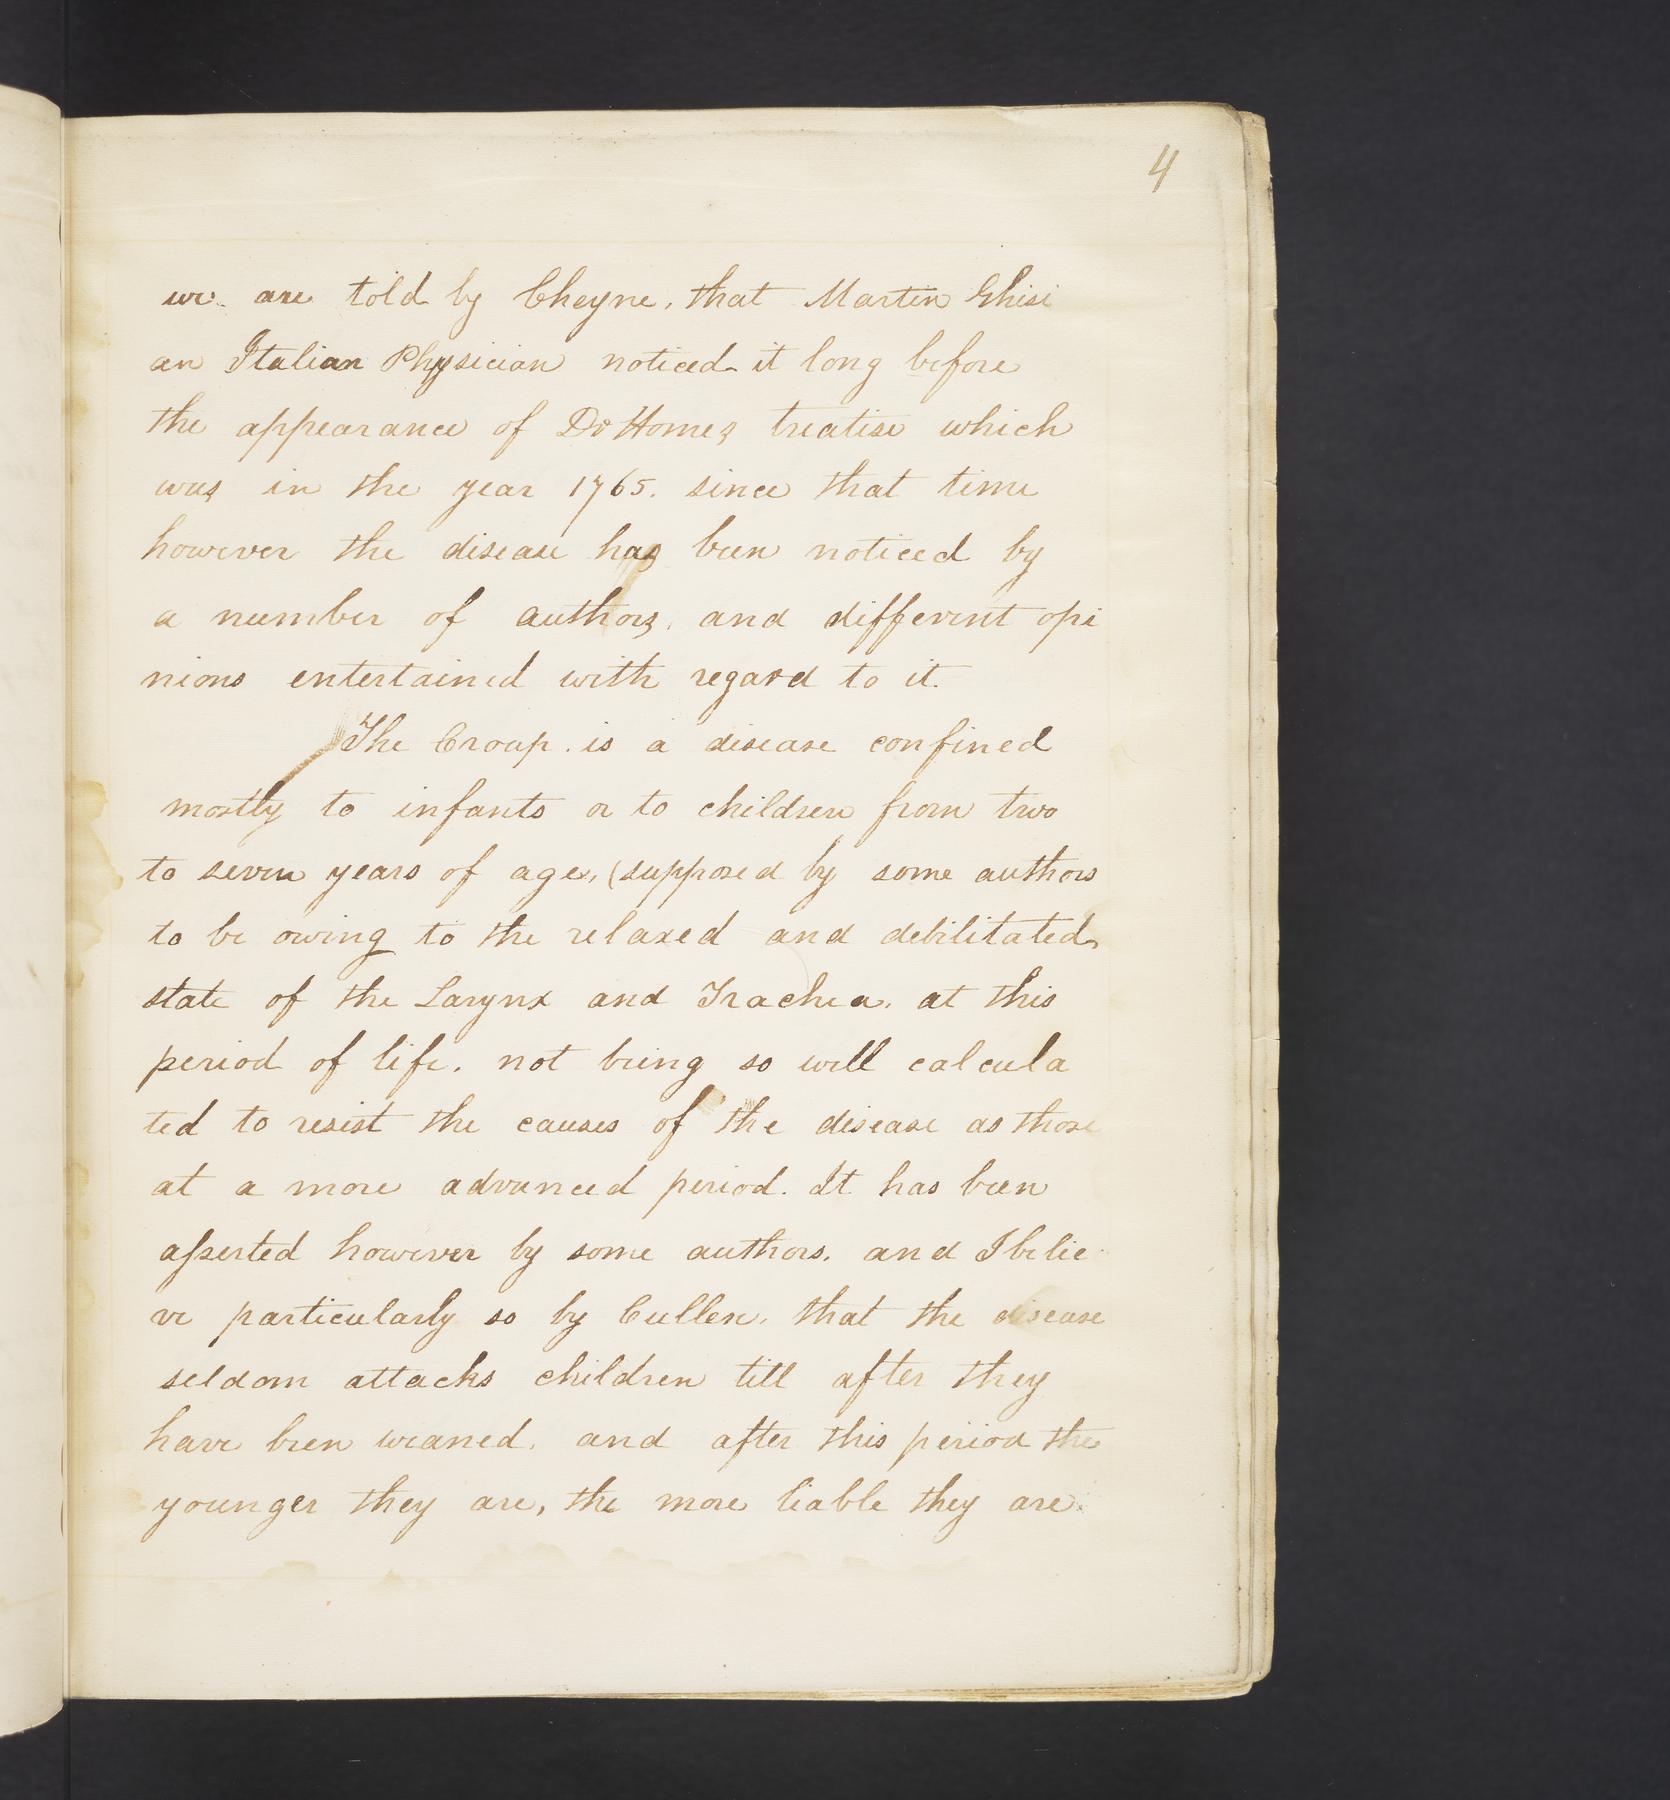 4
we are told by Cheyne, that Martin Ghisi
an Italian Physician noticed it long before
the appearance of Dr Homes treatise which
was in the year 1765. since that time
however the disease has been noticed by
a number of authors, and different opi
nions entertained with regard to it.
The Croup. is a disease confined
mostly to infants or to children from two
to seven years of age, (supposed by some authors
to be owing to the relaxed and debilitated
state of the Larynx and Trachea. at this
period of life. not being so well calcula
ted to resist the causes of the disease as those
at a more advanced period. It has been
asserted however by some authors, and I belie
ve particularly so by Cullen, that the disease
seldom attacks children till after they
have been weaned, and after this period the
younger they are, the more liable they are.